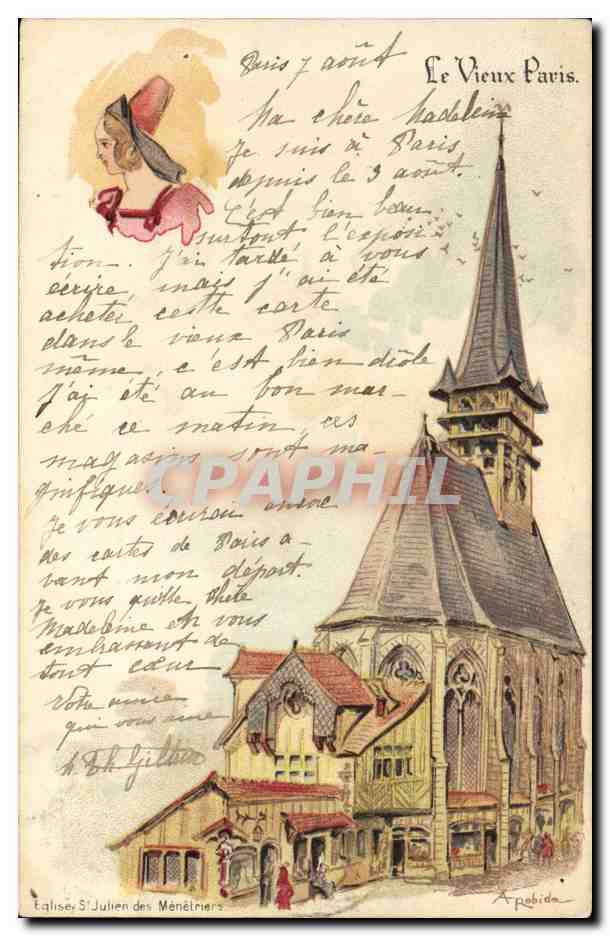 Le Vieux Paris.
Paris 7 août
Ma chère Madeleine
Je suis à Paris
depuis le 3 août.
C'est bien beau
surtout l'exposi
tion. J'ai tardé à vous
écrire, mais j'ai été
acheter cette carte
dans le vieux Paris
même, c'est bien drôle
J'ai été au bon mar-
ché ce matin, ces
magasins sont ma-
gnifiques
Je vous écrirai encore
des cartes de Paris a-
vant mon départ.
Je vous quitte chère
Madeleine en vous
embrassant de
tout cœur
Votre amie
qui vous aime
CPAPHIL
Eglise St Julien des Ménétriers
A. Robida